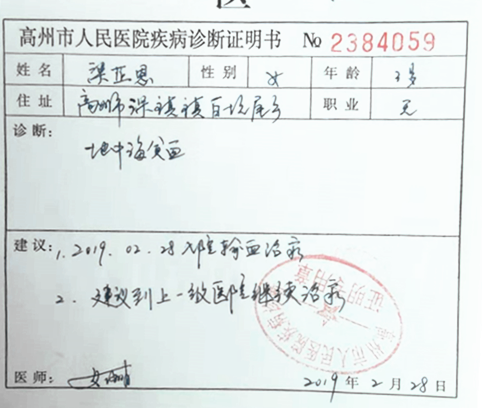 高州市人民医院疾病诊断证明书 № 2384059
姓名 梁芷恩 性别 女 年龄 3岁
住址 高州市深镇镇百坑尾 职业 无
诊断：
地中海贫血
建议：1、2019.02.28入院输血治疗
2、建议到上一级医院继续治疗
高州市人民医院疾病
证明专用章
医师：
2019年2月28日